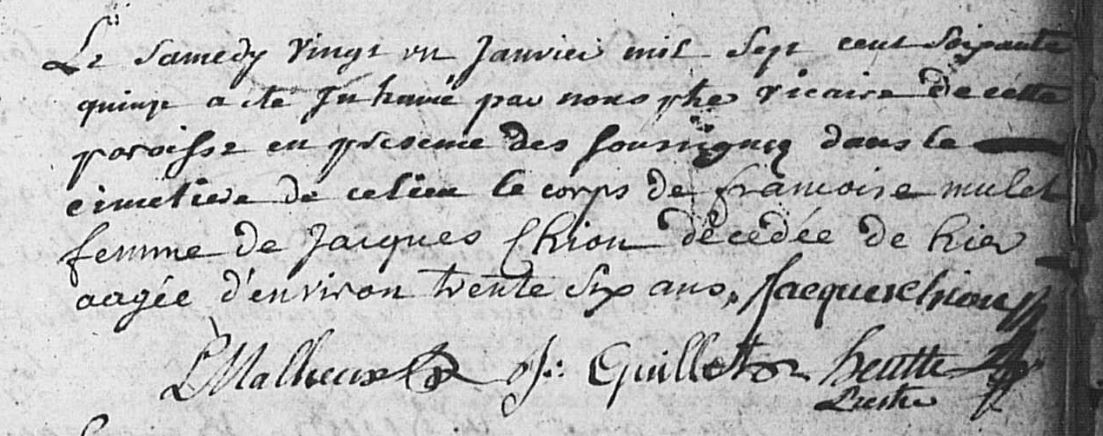 Le samedy vingt un Janvier mil sept cent soixante
quinze a eté Inhumé par nous ptre vicaire de cette
paroisse en presence des soussignez dans le
cimetiere de ce lieu le corps de francoise mulet
femme de Jacques Chion décedée de hier
aagée d'environ trente six ans, Jacques chion
L Malheux J: Guillot heutte
Prestre